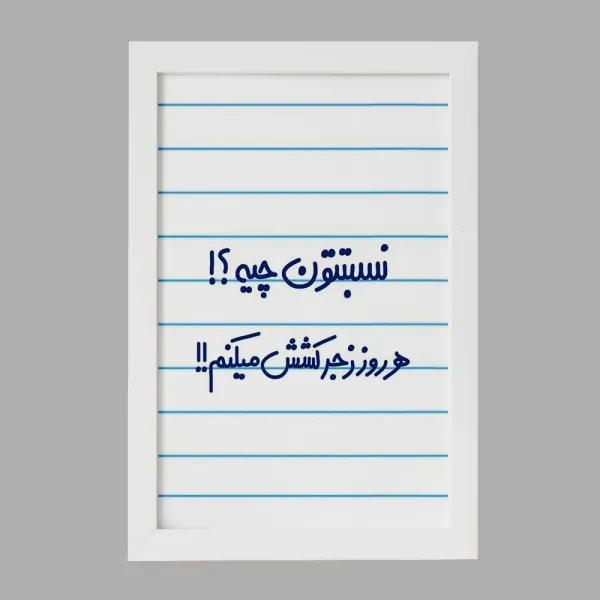 نسبتتون چیه ؟!
هر روز زجر کشش میکنم !!